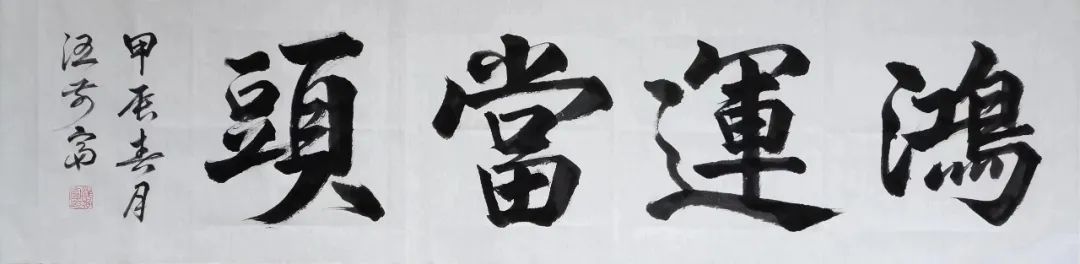 鴻運當頭
甲辰春月
汪芳富